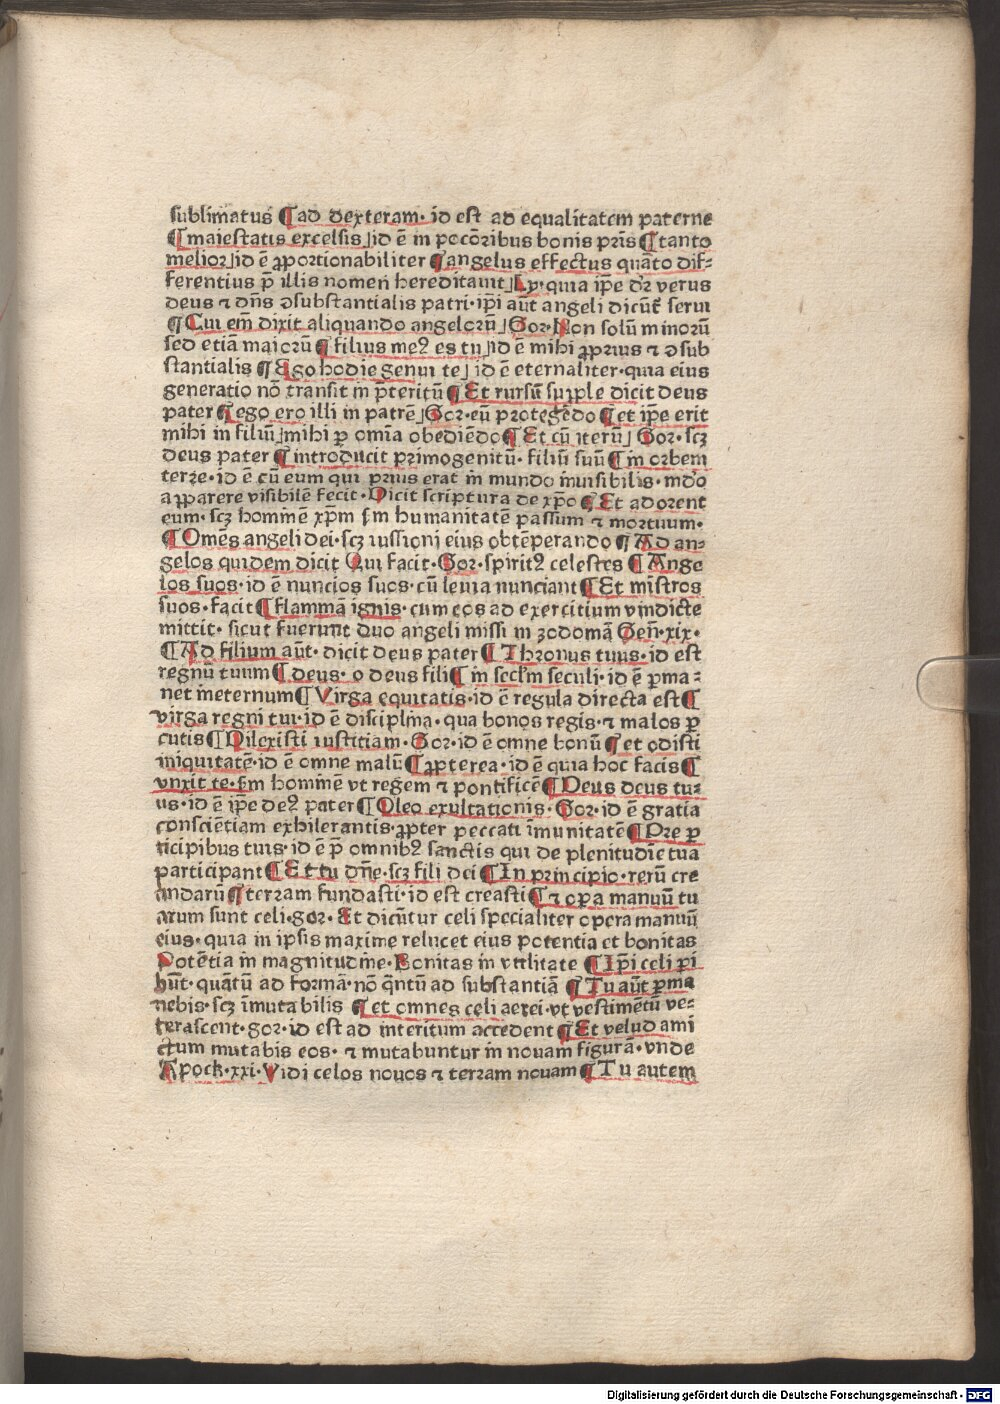 sublimatus ¶ ad dexteram· id est ad equalitatem paterne
¶ maiestatis excelsis⌋ id ē in pocōribus bonis pr̄is ¶ tanto
melior⌋ id ē ꝓportionabiliter ¶ angelus effectus quāto dif⸗
ferentius p̄ illis nomen hereditauit⌋ Ly· quia ip̄e dr̄ verus
deus ⁊ dn̄s ꝯsubstantialis patri· ip̄i aūt angeli dicūt serui
¶ Cui em̄ dixit aliquando angelorū⌋ Gor· Non solū minorū
sed etiā maiorū ¶ filius meꝰ es tu⌋ id ē mihi ꝓprius ⁊ ꝯsub
stantialis ¶ Ego hodie genui te⌋ id ē eternaliter· quia eius
generatio nō transit in p̄teritū ¶ Et rursū supple dicit deus
pater ¶ ego ero illi in patrē⌋ Gor· eū protegēdo ¶ et ip̄e erit
mihi in filiū⌋ mihi ꝑ omīa obediēdo ¶ Et cū iterū⌋ Gor· scꝫ
deus pater ¶ introducit primogenitū· filiū suū ¶ in orbem
terre· id ē cū eum qui prius erat in mundo inuisibilis· mō
apparere visibilē fecit· Dicit scriptura de xp̄o ¶ Et adorent
eum· scꝫ hominē xp̄m fm humanitatē passum ⁊ mortuum·
¶ Omēs angeli dei· scꝫ iussioni eius obtēperando ¶ Ad an⸗
gelos quidem dicit Qui facit· Gor· spiritꝰ celestes ¶ Ange
los suos· id ē nuncios suos· cū leuia nunciant ¶ Et mīstros
suos· facit ¶ flammā ignis· cum eos ad exercitium vindicte
mittit· sicut fuerunt duo angeli missi in zodomā Gen̄· xix·
¶ Ad filium aūt· dicit deus pater ¶ Thronus tuus· id est
regnū tuum ¶ deus· o deus fili ¶ in secl̄m seculi· id ē ꝑma⸗
net ineternum ¶ Virga equitatis· id ē regula directa est ¶
virga regni tui· id ē disciplina· qua bonos regis· ⁊ malos ꝑ
cutis ¶ Dilexisti iustitiam· Gor· id ē omne bonū ¶ et odisti
iniquitatē· id ē omne malū ¶ ꝓpterea· id ē quia hoc facis ¶
vnxit te· fm hominē vt regem ⁊ pontificē ¶ Deus deus tu⸗
us· id ē ip̄e deꝰ pater ¶ Oleo exultationis· Gor· id ē gratia
consciētiam exhilerantis· ꝓpter peccati īmunitatē ¶ Pre ꝑ
ticipibus tuis· id ē p̄ omnibꝰ sanctis qui de plenitudīe tua
participant ¶ Et tu dn̄e· scꝫ fili dei ¶ In principio· rerū cre
andarū ¶ terram fundasti· id est creasti ¶ ⁊ oꝑa manuū tu
arum sunt celi· gor· Et dicūtur celi specialiter opera manuū
eius· quia in ipsis maxime relucet eius potentia et bonitas
Potētia in magnitudine· Bonitas in vtilitate ¶ Ip̄i celi ꝑi
būt· quātū ad formā· nō q̄ntū ad substantiā ¶ Tu aūt ꝑma
nebis· scꝫ īmutabilis ¶ et omnes celi aerei· vt vestimētū ve⸗
terascent· gor· id est ad interitum accedent ¶ Et velud ami
ctum mutabis eos· ⁊ mutabuntur in nouam figurā· vnde
Apock· xxi· Vidi celos nouos ⁊ terram nouam ¶ Tu autem
Digitalisierung gefördert durch die Deutsche Forschungsgemeinschaft - DFG